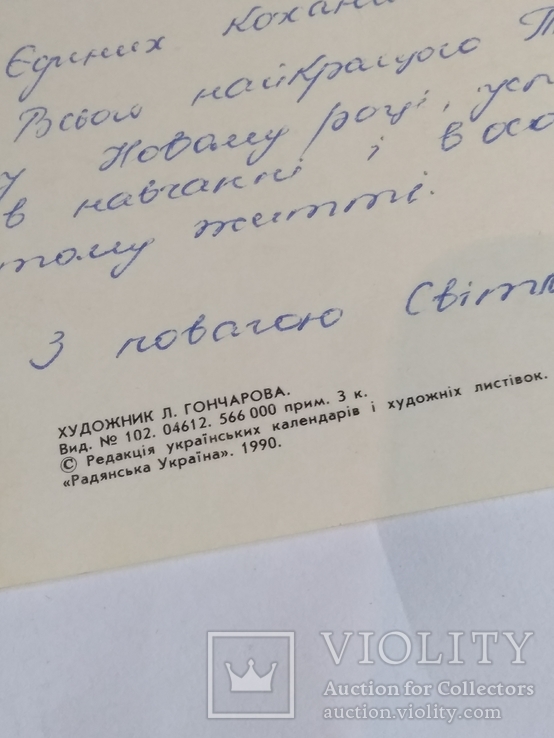 Єдиних
Всього найкращого
у Новому році,
в навчанні і в
життті.
З повагою
ХУДОЖНИК Л. ГОНЧАРОВА.
Вид. № 102. 04612. 566 000 прим. 3 к.
© Редакція українських календарів і художніх листівок.
«Радянська Україна». 1990.
VIOLITY
Auction for Collectors
auction.violity.com